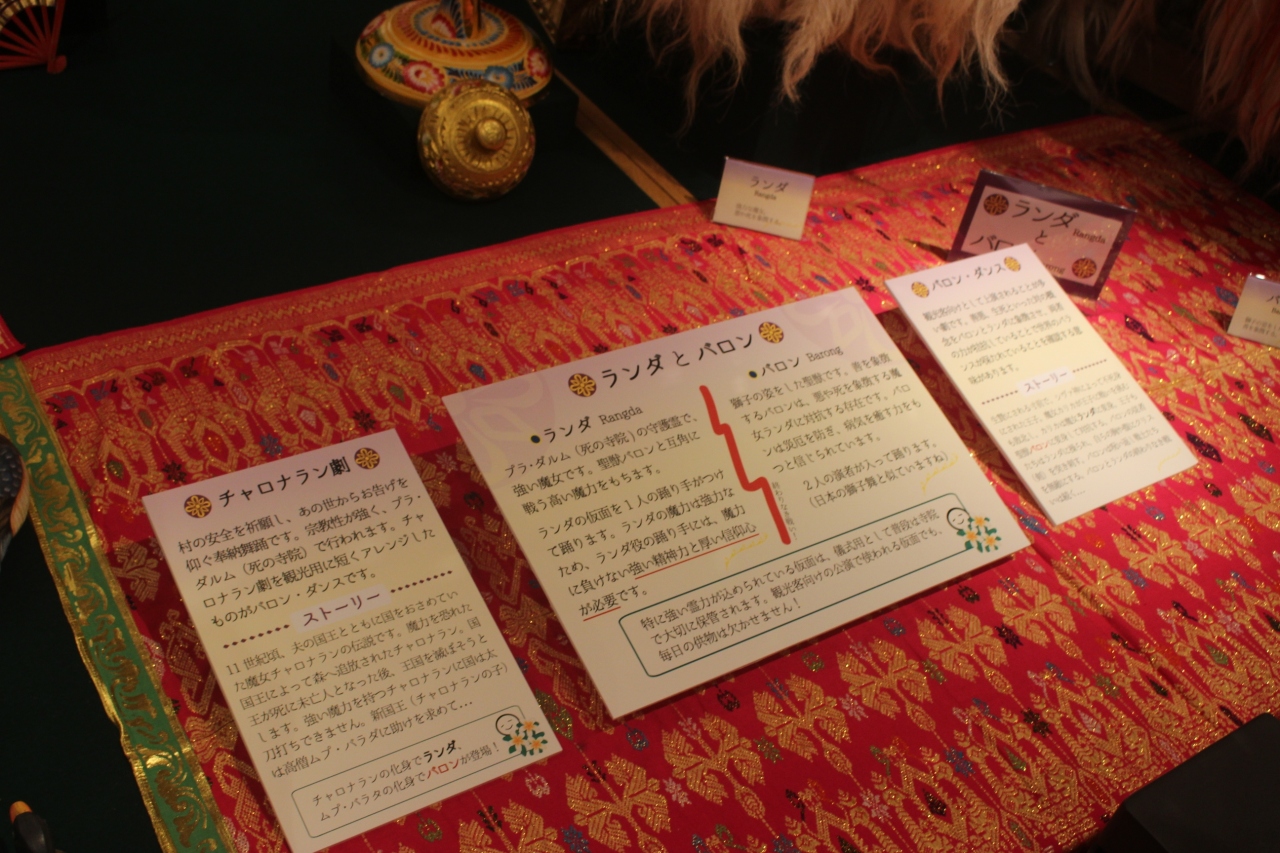 チャロナラン劇
村の安全を祈願し、あの世からお告げを
仰ぐ奉納舞踊です。宗教性が強く、プラ・
ダルム（死の寺院）で行われます。チャ
ロナラン劇を観光用に短くアレンジした
ものがバロン・ダンスです。
ストーリー
11世紀頃、夫の国王とともに国をおさめてい
た魔女チャロナランの伝説です。魔力を恐れた
国王によって森へ追放されたチャロナラン。国
王が死に未亡人となった後、王国を滅ぼそうと
します。強い魔力を持つチャロナランに国は太
刀打ちできません。新国王（チャロナランの子）
は高僧ムプ・バラダに助けを求めて…
チャロナランの化身でランダ、
ムプ・バラダの化身でバロンが登場！
ランダとバロン
ランダ Rangda
プラ・ダルム（死の寺院）の守護霊で、
強い魔女です。聖獣バロンと互角に
戦う高い魔力をもちます。
ランダの仮面を1人の踊り手がつけ
て踊ります。ランダの魔力は強力な
ため、ランダ役の踊り手には、魔力
に負けない強い精神力と厚い信仰心
が必要です。
バロン Barong
獅子の姿をした聖獣です。善を象徴
するバロンは、悪や死を象徴する魔
女ランダに対抗する存在です。バロ
ンは災厄を防ぎ、病気を癒す力をも
つと信じられています。
2人の演者が入って踊ります。
（日本の獅子舞と似ていますね）
終わりなき戦い
特に強い霊力が込められている仮面は、儀式用として普段は寺院
で大切に保管されます。観光客向けの公演で使われる仮面でも、
毎日の供物は欠かせません！
バロン・ダンス
観光客向けとして上演されることが多
い劇です。善悪、生死といった対の概
念をバロンとランダに象徴させ、両者
の力が拮抗していることで世界のバラ
ンスが保たれていることを確認する意
味があります。
ストーリー
ランダ
Rangda
ランダ
Rangda
と